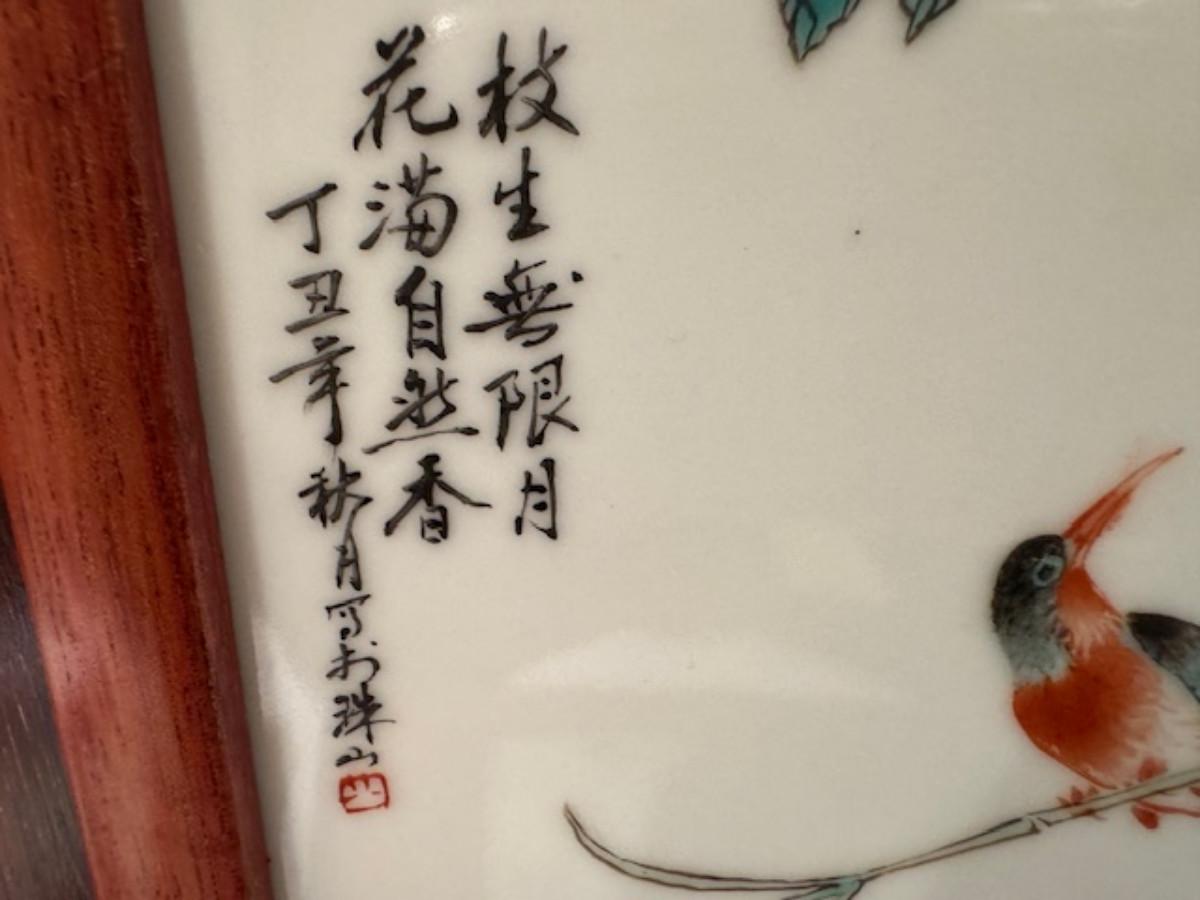 枝生無限月
花满自然香
丁丑年秋月写於珠山